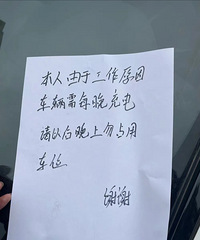 本人由于工作原因
车辆需每晚充电
请以后晚上勿占用
车位
谢谢